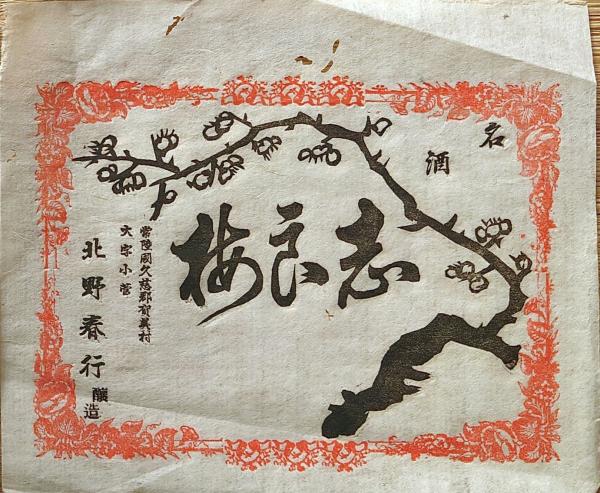 名酒
志良梅
常陸國久慈郡賀美村
大字小菅
北野春行
醸造